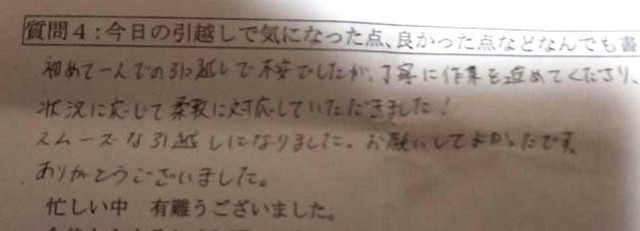 質問4:今日の引越しで気になった点、良かった点などなんでも書
初めて一人での引っ越しで不安でしたが、丁寧に作業を進めてくださり、
状況に応じて柔軟に対応していただきました!
スムーズな引越しになりました。お願いしてよかったです。
ありがとうございました。
忙しい中 有難うございました。